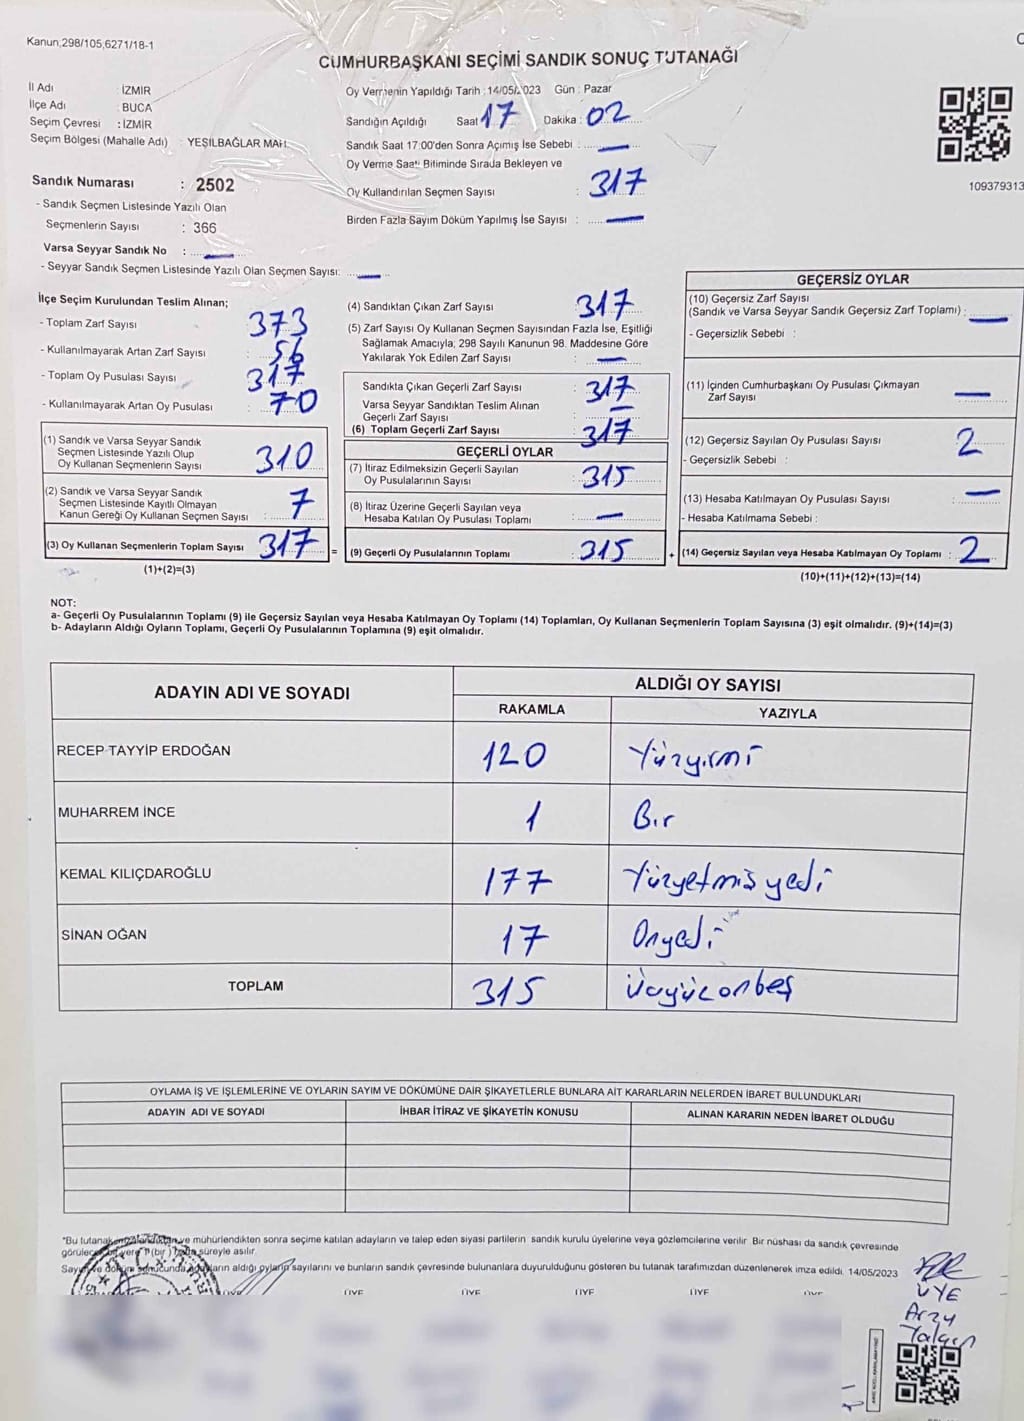 Kanun;298/105,6271/18-1
CUMHURBAŞKANI SEÇİMİ SANDIK SONUÇ TUTANAĞI
İl Adı : İZMİR
İlçe Adı : BUCA
Seçim Çevresi : İZMİR
Seçim Bölgesi (Mahalle Adı) : YEŞİLBAĞLAR MAH.
Oy Vermenin Yapıldığı Tarih : 14/05/2023 Gün : Pazar
Sandığın Açıldığı Saat 17 Dakika : 02
Sandık Saat 17:00'den Sonra Açımış İse Sebebi : —
Oy Verme Saati Bitiminde Sırada Bekleyen ve
Oy Kullandırılan Seçmen Sayısı : 317
Birden Fazla Sayım Döküm Yapılmış İse Sayısı : —
109379313
Sandık Numarası : 2502
- Sandık Seçmen Listesinde Yazılı Olan
Seçmenlerin Sayısı : 366
Varsa Seyyar Sandık No : —
- Seyyar Sandık Seçmen Listesinde Yazılı Olan Seçmen Sayısı: —
İlçe Seçim Kurulundan Teslim Alınan;
- Toplam Zarf Sayısı : 373
- Kullanılmayarak Artan Zarf Sayısı : 56
- Toplam Oy Pusulası Sayısı : 317
- Kullanılmayarak Artan Oy Pusulası : 70
(1) Sandık ve Varsa Seyyar Sandık
Seçmen Listesinde Yazılı Olup
Oy Kullanan Seçmenlerin Sayısı : 310
(2) Sandık ve Varsa Seyyar Sandık
Seçmen Listesinde Kayıtlı Olmayan
Kanun Gereği Oy Kullanan Seçmen Sayısı : 7
(3) Oy Kullanan Seçmenlerin Toplam Sayısı : 317
(1)+(2)=(3)
(4) Sandıktan Çıkan Zarf Sayısı : 317
(5) Zarf Sayısı Oy Kullanan Seçmen Sayısından Fazla İse, Eşitliği
Sağlamak Amacıyla; 298 Sayılı Kanunun 98. Maddesine Göre
Yakılarak Yok Edilen Zarf Sayısı : —
Sandıkta Çıkan Geçerli Zarf Sayısı : 317
Varsa Seyyar Sandıktan Teslim Alınan
Geçerli Zarf Sayısı : —
(6) Toplam Geçerli Zarf Sayısı : 317
GEÇERLİ OYLAR
(7) İtiraz Edilmeksizin Geçerli Sayılan
Oy Pusulalarının Sayısı : 315
(8) İtiraz Üzerine Geçerli Sayılan veya
Hesaba Katılan Oy Pusulası Toplamı : —
= (9) Geçerli Oy Pusulalarının Toplamı : 315
GEÇERSİZ OYLAR
(10) Geçersiz Zarf Sayısı
(Sandık ve Varsa Seyyar Sandık Geçersiz Zarf Toplamı) : —
- Geçersizlik Sebebi :
(11) İçinden Cumhurbaşkanı Oy Pusulası Çıkmayan
Zarf Sayısı : —
(12) Geçersiz Sayılan Oy Pusulası Sayısı : 2
- Geçersizlik Sebebi :
(13) Hesaba Katılmayan Oy Pusulası Sayısı : —
- Hesaba Katılmama Sebebi :
+ (14) Geçersiz Sayılan veya Hesaba Katılmayan Oy Toplamı : 2
(10)+(11)+(12)+(13)=(14)
NOT:
a- Geçerli Oy Pusulalarının Toplamı (9) ile Geçersiz Sayılan veya Hesaba Katılmayan Oy Toplamı (14) Toplamları, Oy Kullanan Seçmenlerin Toplam Sayısına (3) eşit olmalıdır. (9)+(14)=(3)
b- Adayların Aldığı Oyların Toplamı, Geçerli Oy Pusulalarının Toplamına (9) eşit olmalıdır.
ADAYIN ADI VE SOYADI ALDIĞI OY SAYISI
RAKAMLA YAZIYLA
RECEP TAYYİP ERDOĞAN 120 Yüzyirmi
MUHARREM İNCE 1 Bir
KEMAL KILIÇDAROĞLU 177 Yüzyetmiş yedi
SİNAN OĞAN 17 Onyedi
TOPLAM 315 Üçyüzonbeş
OYLAMA İŞ VE İŞLEMLERİNE VE OYLARIN SAYIM VE DÖKÜMÜNE DAİR ŞİKAYETLERLE BUNLARA AİT KARARLARIN NELERDEN İBARET BULUNDUKLARI
ADAYIN ADI VE SOYADI İHBAR İTİRAZ VE ŞİKAYETİN KONUSU ALINAN KARARIN NEDEN İBARET OLDUĞU
"Bu tutanak ve mühürlendikten sonra seçime katılan adayların ve talep eden siyasi partilerin sandık kurulu üyelerine veya gözlemcilerine verilir. Bir nüshası da sandık çevresinde
görülecek bir yere 1 (bir) hafta süreyle asılır.
Sayım ve döküm sonucunda adayların aldığı oyların sayılarını ve bunların sandık çevresinde bulunanlara duyurulduğunu gösteren bu tutanak tarafımızdan düzenlenerek imza edildi. 14/05/2023
ÜYE ÜYE ÜYE ÜYE ÜYE
ÜYE
Arzu
Yalçın